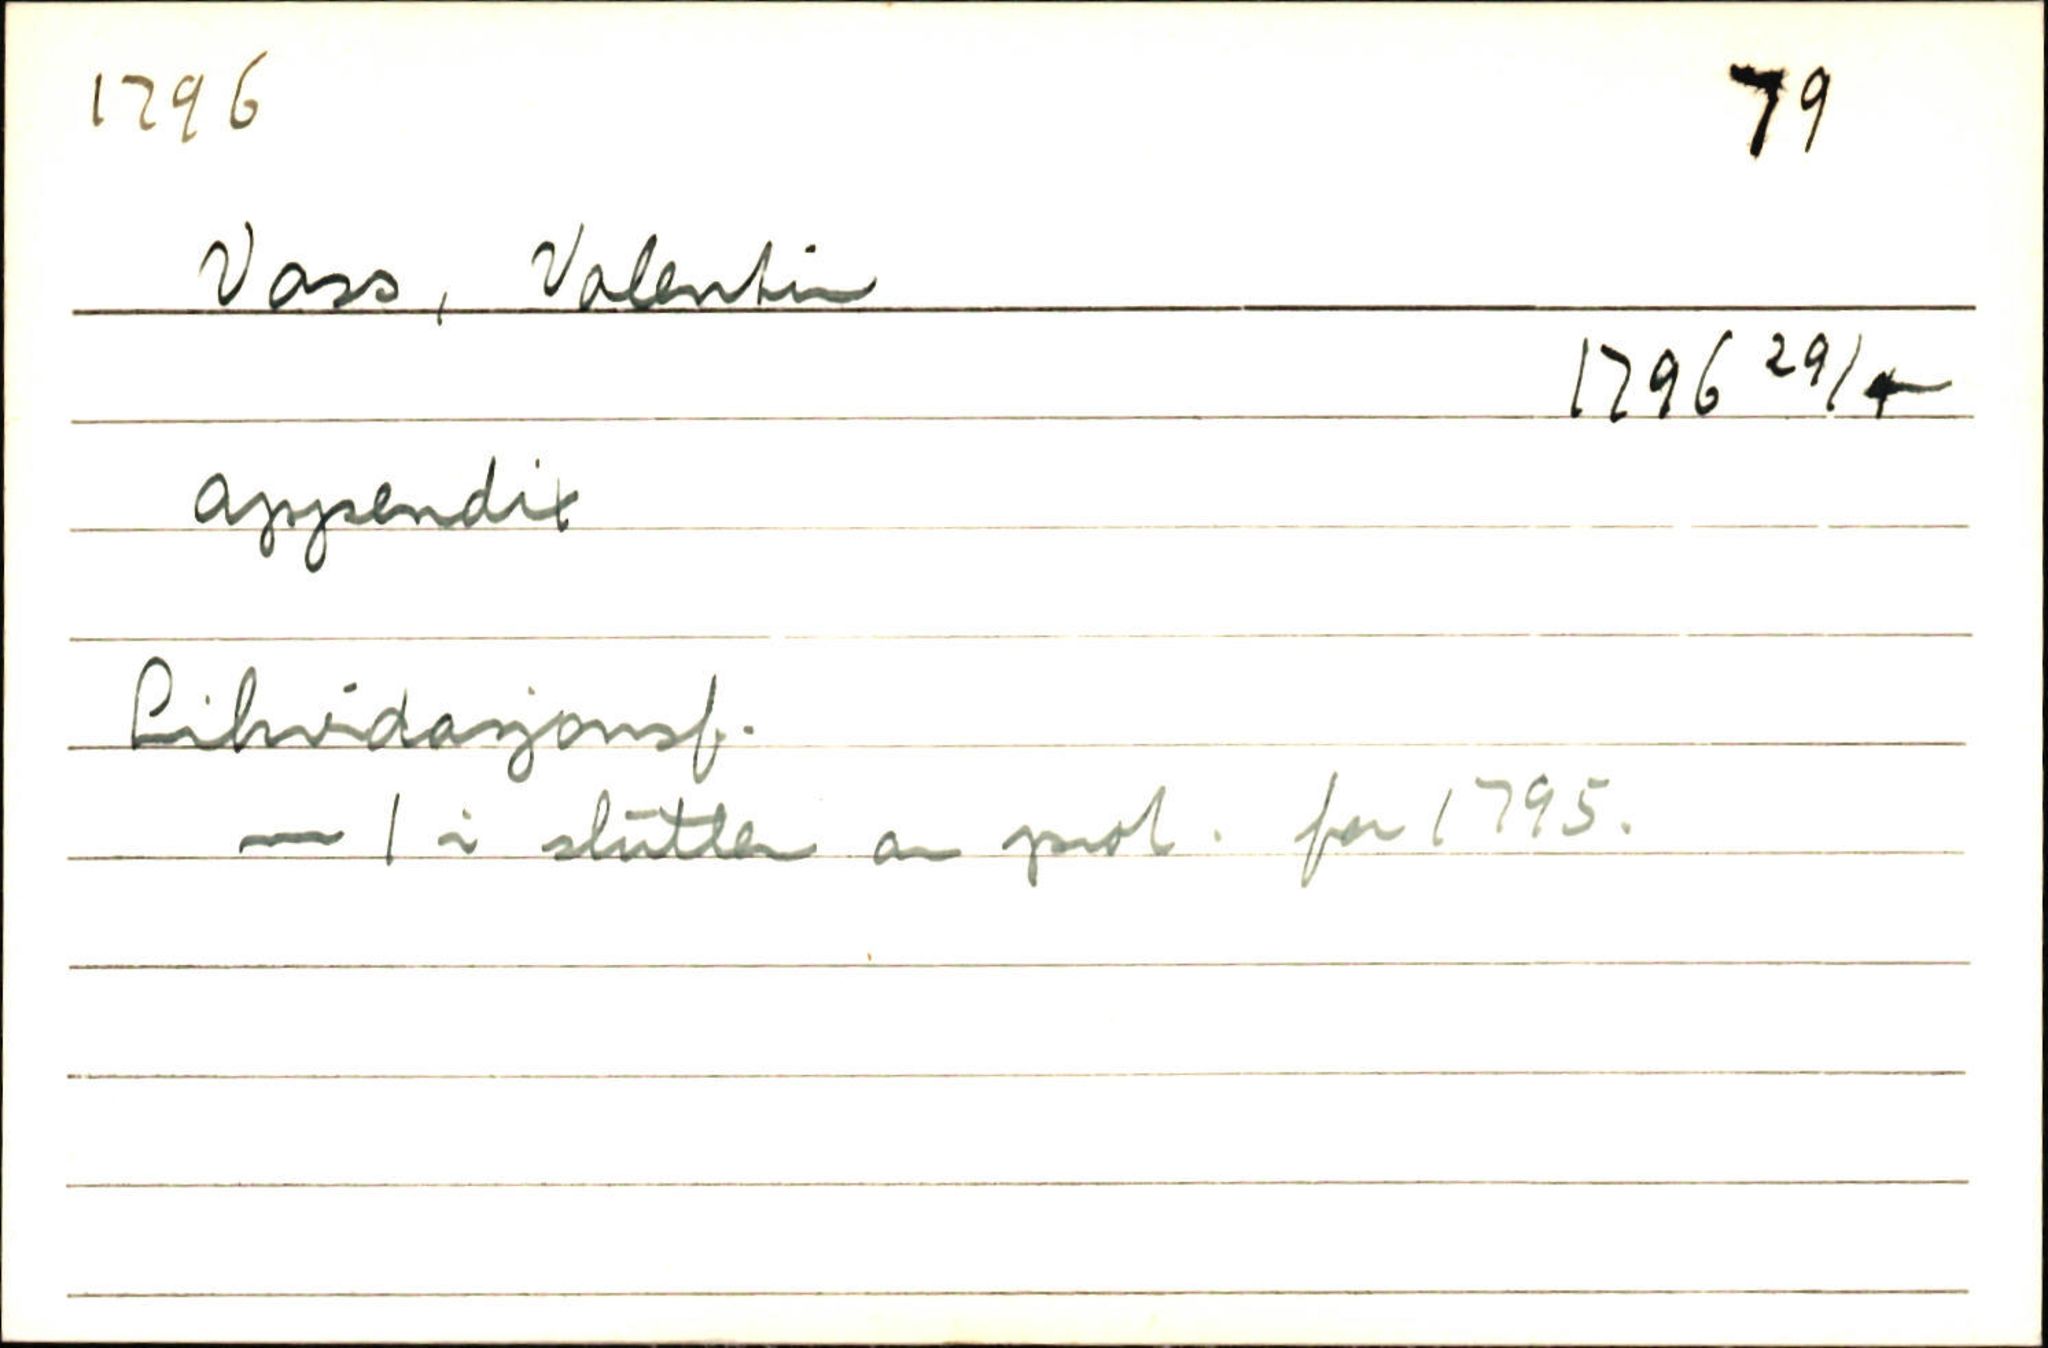 1796 79
Vass, Valentin
1796 29/4
Appendix
Likvidasjonsf.
— 1 i slutten av prot. for 1795.